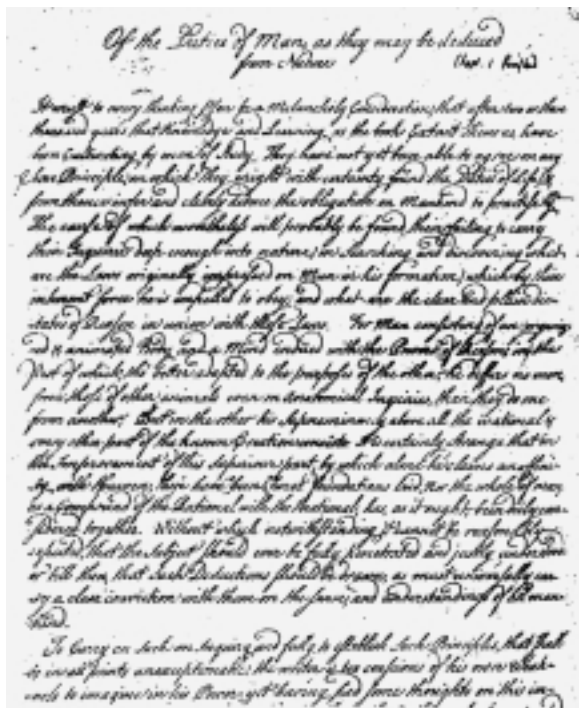 Of the Duties of Man, as they may be deduced
from Nature
It must to every thinking Man be a Melancholy Consideration, that after two or three
thousand years that Knowledge and Learning, as the books Extant Shew us, have
been Cultivating, by means of Study. They have not yet been able to agree on any
clear Principle, on which They might with certainty found the Duties of Life
from thence infer and clearly deduce the obligations on Mankind to practise
The cause of which will probably be found their failing to carry
their Inquiries deep enough into nature; in searching and discovering what
are the Laws originally impressed on Man in his formation; which by their
inherent force he is impelled to obey; and what are the clear and plain dic-
tates of Reason in union with those Laws. For Man consisting of an organiz-
ed & animated Body and a Mind endued with the Power of
first of which, the latter adapted to the purposes of the other, he differs no more
from those of other animals even in Anatomical Inquiries, than they do one
from another; But in the other his Supereminency above all the irrational &
every other part of the known Creation consists. It is certainly strange that in
the Improvement of this superiour part, by which alone he claims an affini-
ty with Heaven, there have been laid, nor the whole of man,
as a Compound of the Animal with the Rational, has, as it ought, been duly con-
sidered together. Without which notwithstanding, it cannot be reasonably
expected, that the subject should ever be fully penetrated and justly understood
or till then, that such Deductions should be drawn, as must universally car-
ry a clear conviction with them on the sense, and understandings of all man-
kind.
To Carry on such an Inquiry, and fully to establish such Principles, that shall
in all points unexceptionable; the writer is too conscious of his own
to imagine in his Power, yet having had some thoughts on this